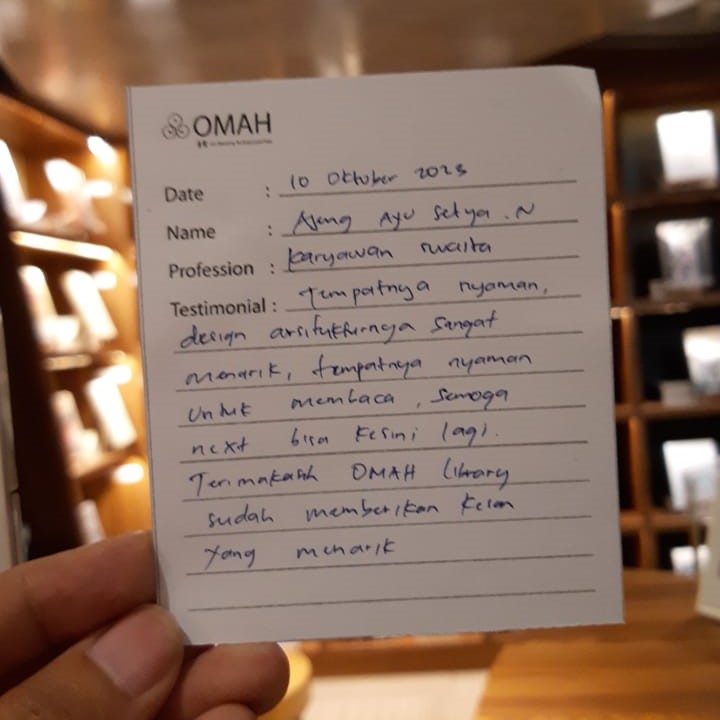 OMAH
Date : 10 Oktober 2023
Name : Ajeng Ayu Setya . N
Profession : Karyawan swasta
Testimonial : Tempatnya nyaman,
design arsitekturnya sangat
menarik, tempatnya nyaman
untuk membaca, semoga
next bisa kesini lagi.
Terimakasih OMAH Library
sudah memberikan kesan
yang menarik